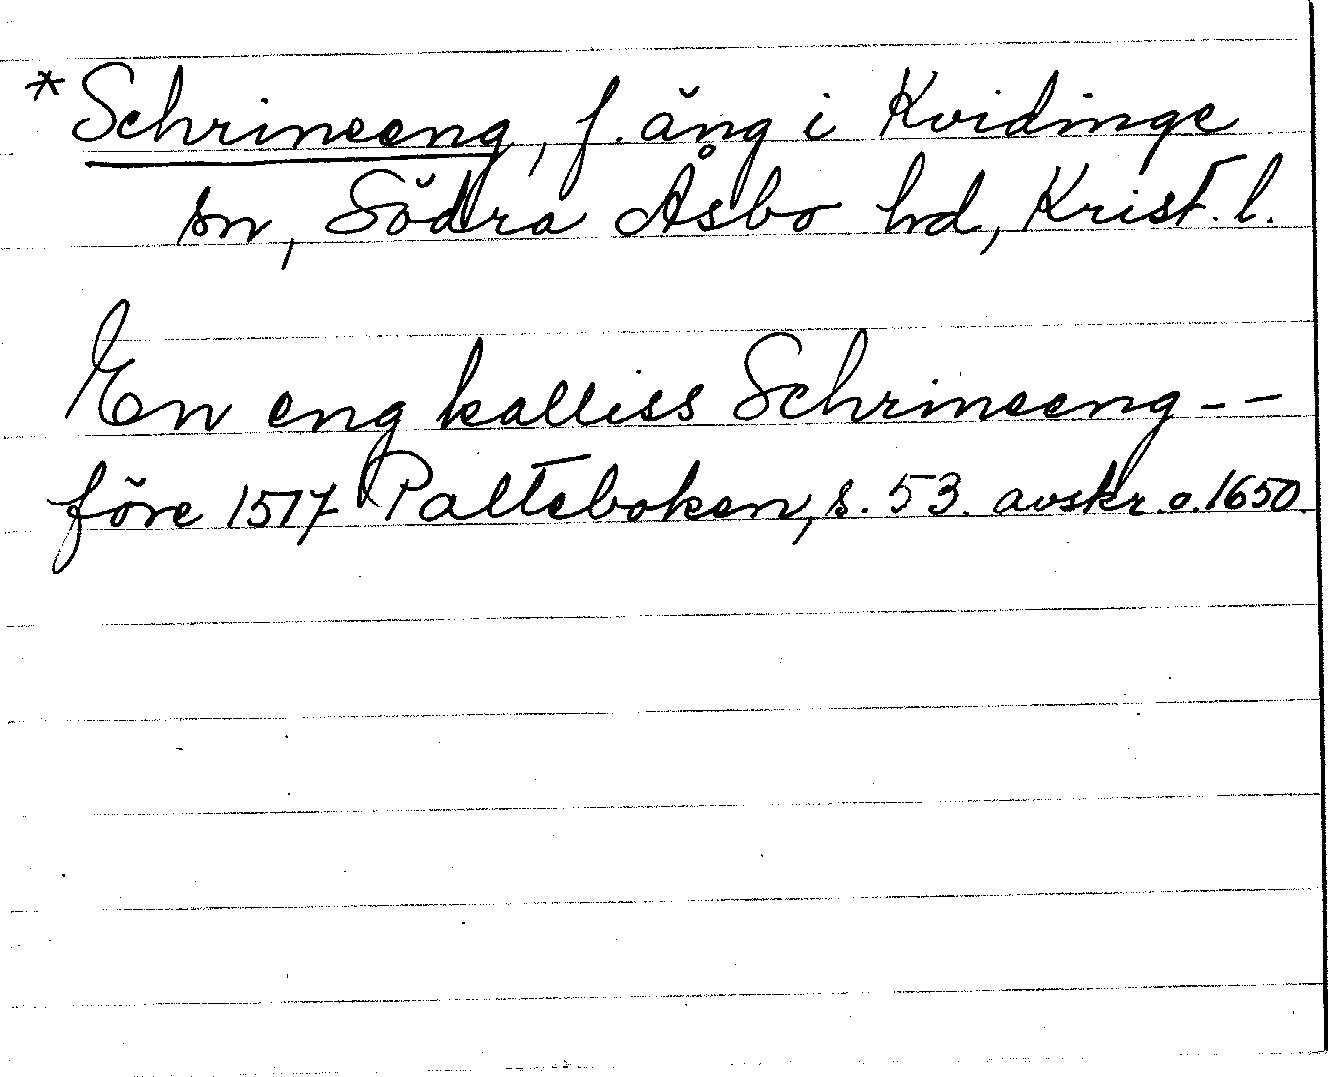 *Schrineeng, f. äng i Kvidinge
sn, Södra Åsbo hd, Krist. l.
En eng kalliss Schrineeng --
före 1517 Palteboken, s. 53. avskr. o. 1650.